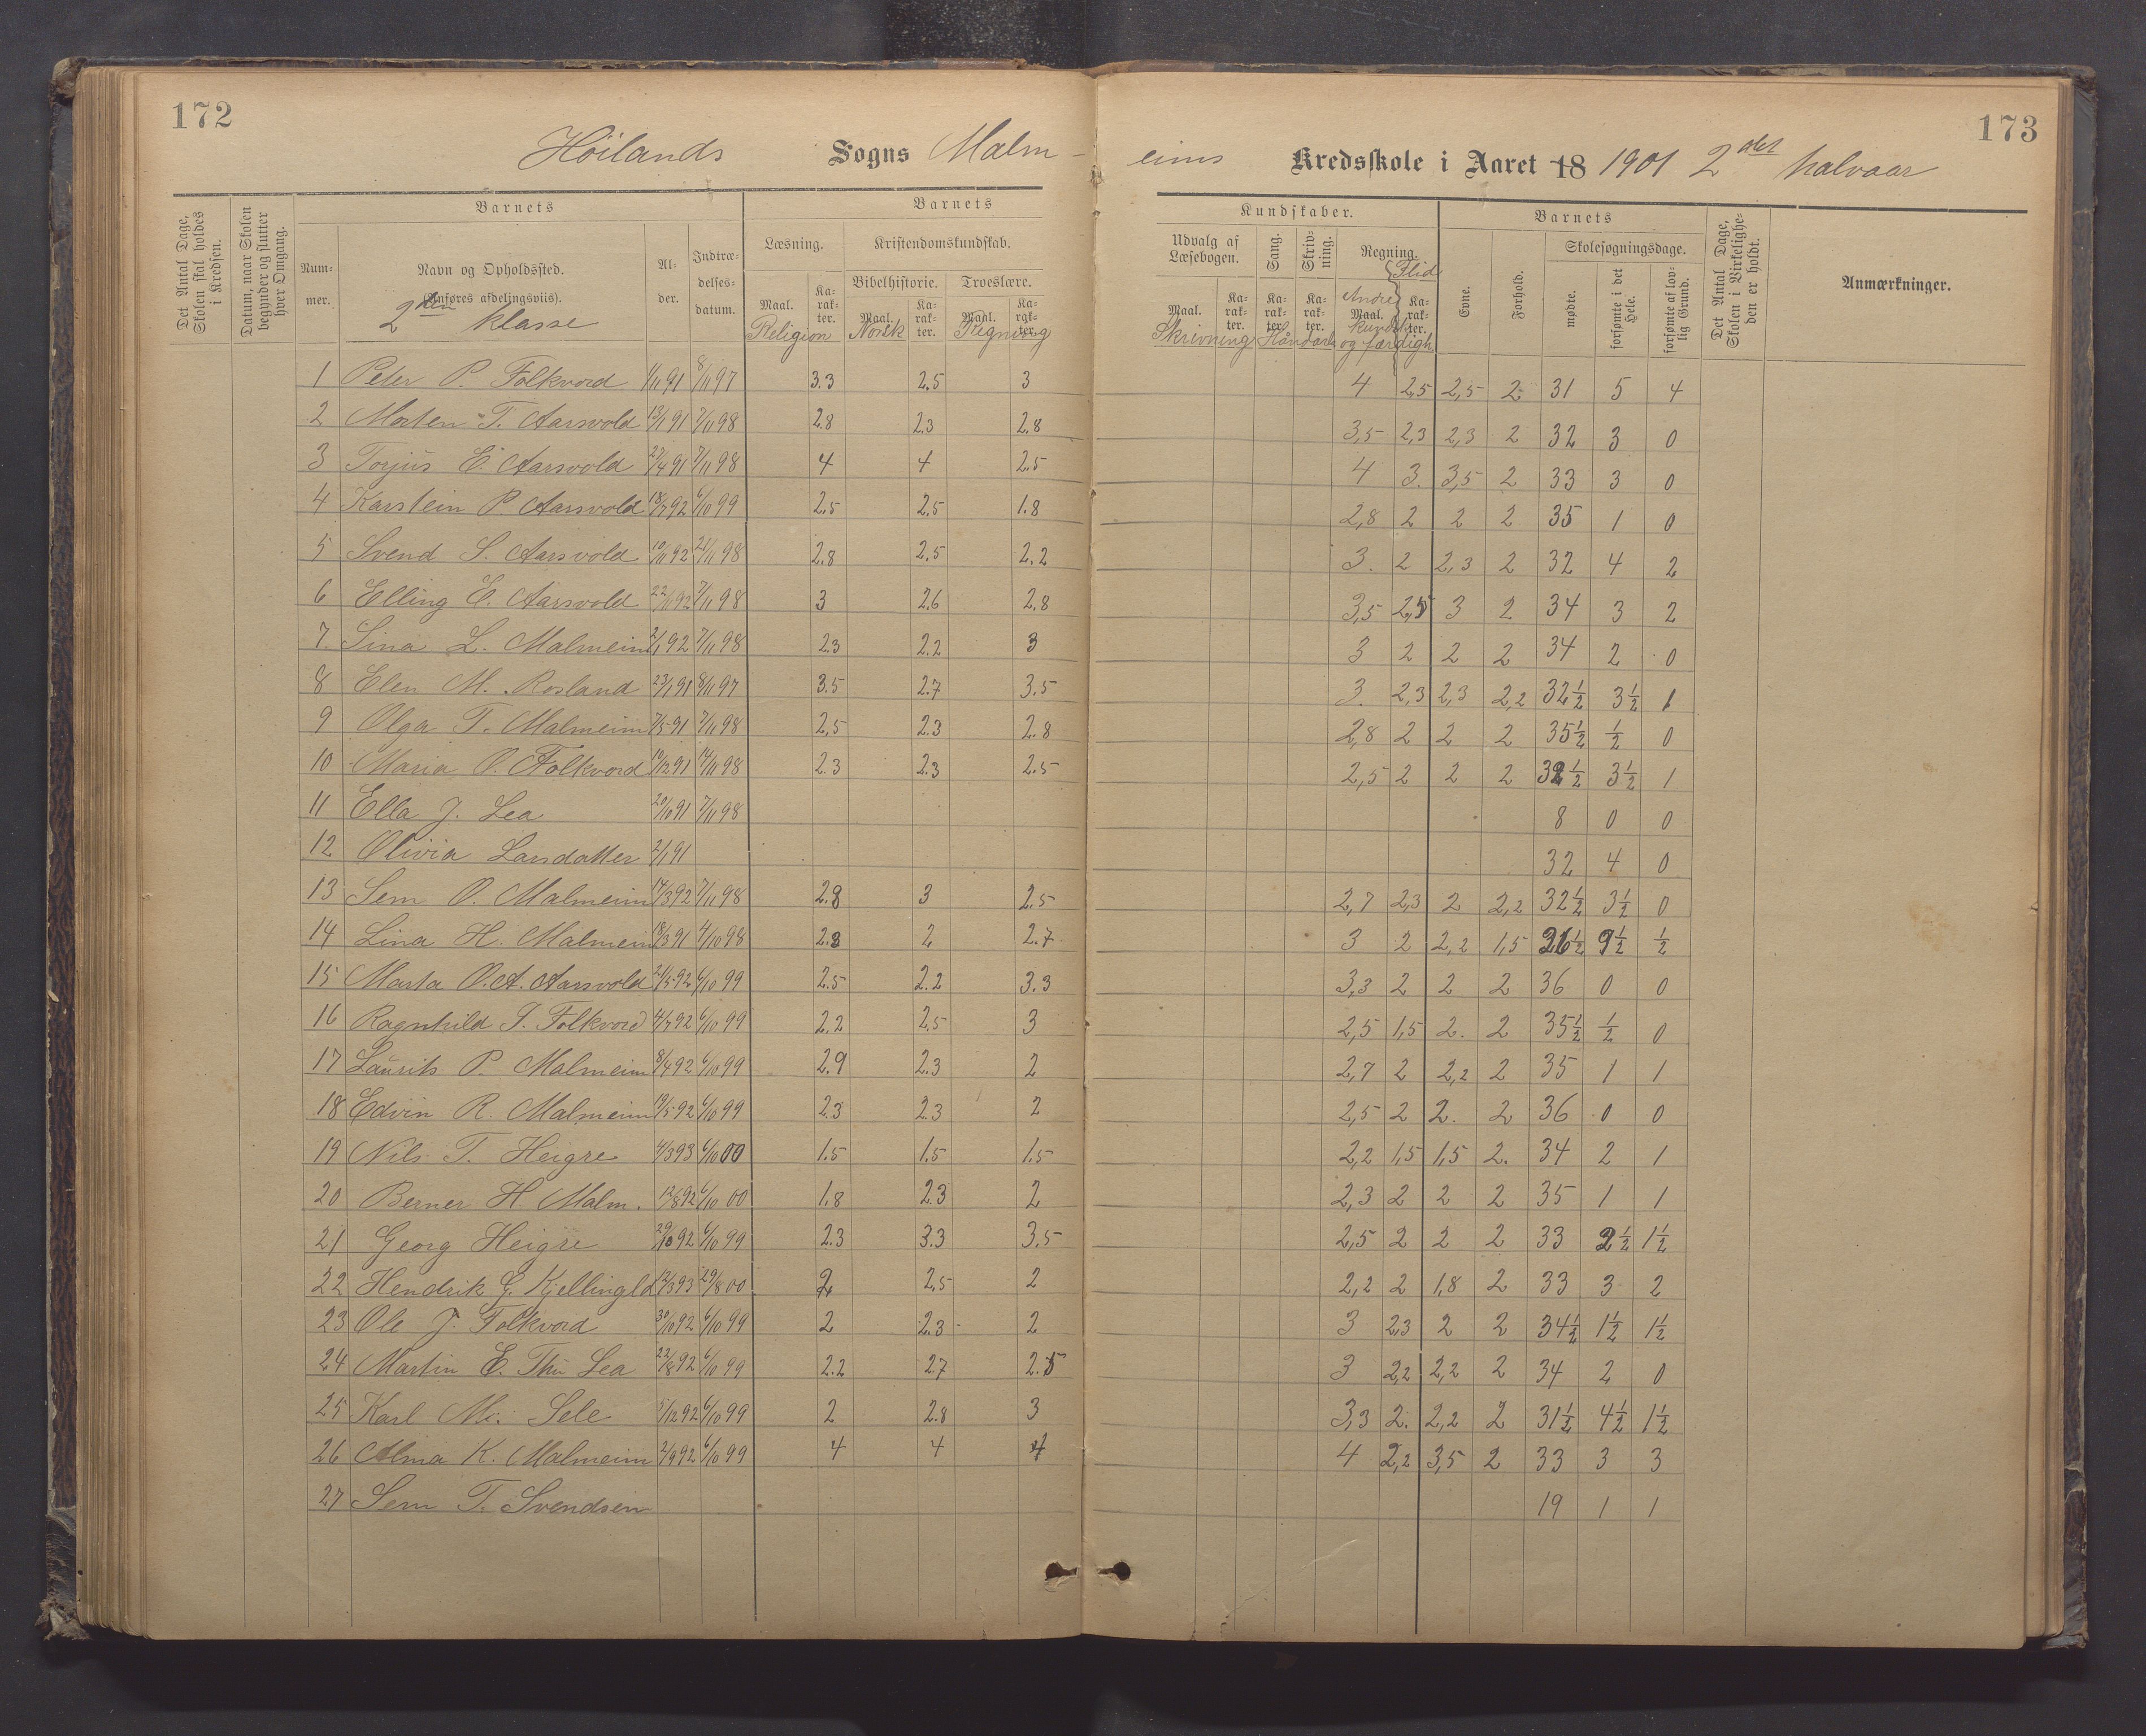 172
173
Höilands Sogns Malm-
eims Kredsskole i Aaret 18 1901 2det halvaar
Det Antal Dage, Skolen skal holdes i Kredsen.
Datum, naar Skolen begynder og slutter hver Omgang.
Barnets
Barnets
Kundskaber.
Barnets
Det Antal Dage, Skolen i Virkeligheden er holdt.
Anmærkninger.
Nummer.
Navn og Opholdssted.
(Anføres afdelingsviis).
2den klasse
Alder.
Indtrædelsesdatum.
Læsning.
Kristendomskundskab.
Bibelhistorie. Troeslære.
Maal. Karakter. Maal. Karakter. Maal. Karakter.
Religion Norsk Regning
Udvalg af Læsebogen. Sang. Skrivning. Regning. Flid
Maal. Karakter. Karakter. Karakter. Maal. Karakter.
Skrivning Håndarb Andre kundsk og færdigh
Evne. Forhold. Skolesøgningsdage.
mødte. forsømte i det Hele. forsømte af lovlig Grund.
1 Peter P. Folkvord 1/11 91 8/11 97 3.3 2.5 3 4 2,5 2,5 2 31 5 4
2 Morten T. Aarsvold 13/1 91 7/11 98 2.8 2.3 2.8 3,5 2,3 2,3 2 32 3 0
3 Torjus E. Aarsvold 27/4 91 7/11 98 4 4 2.5 4 3. 3,5 2 33 3 0
4 Karstein P Aarsvold 18/7 92 6/10 99 2.5 2.5 1.8 2,8 2 2 2 35 1 0
5 Svend S. Aarsvold 10/11 92 21/11 98 2.8 2.5 2.2 3. 2 2,3 2 32 4 2
6 Elling E. Aarsvold 22/11 92 7/11 98 3 2.6 2.8 3,5 2,5 3 2 34 3 2
7. Sina L. Malmeim 2/1 92 7/11 98 2.3 2.2 3 3 2 2 2 34 2 0
8 Elen M. Rosland 23/1 91 8/11 97 3.5 2.7 3.5 3. 2,3 2,3 2,2 32 1/2 3 1/2 1
9 Olga T. Malmeim 7/5 91 7/11 98 2,5 2.3 2.8 2,8 2 2 2 35 1/2 1/2 0
10 Maria O. Folkvord 19/12 91 14/11 98 2.3 2.3 2.5 2,5 2 2 2 32 1/2 3 1/2 1
11 Ella J. Lea 20/10 91 7/11 98 8 0 0
12 Olivia Larsdatter 2/1 91 32 4 0
13 Sem O. Malmeim 14/3 92 7/11 98 2.8 3 2.5 2,7 2,3 2 2,2 32 1/2 3 1/2 0
14 Lina H. Malmeim 18/3 91 4/10 98 2.8 2 2.7 3 2 2,2 1,5 26 1/2 9 1/2 1/2
15 Marta O.A. Aarsvold 21/5 92 6/10 99 2.5 2.2 3.3 3,3 2 2 2 36 0 0
16 Ragnhild G. Folkvord 4/7 92 6/10 99 2.2 2,5 3 2,5 1,5 2. 2 35 1/2 1/2 0
17 Laurits P. Malmeim 8/4 92 6/10 99 2.9 2.3 2 2,7 2 2,2 2 35 1 1
18 Edvin R. Malmeim 19/5 92 6/10 99 2.3 2.3 2 2,5 2 2. 2 36 0 0
19 Nils T. Heigre 4/3 93 6/10 00 1.5 1.5 1.5 2,2 1,5 1,5 2. 34 2 1
20 Berner H. Malm. 12/8 92 6/10 00 1.8 2.3 2 2,3 2 2 2 35 1 1
21 Georg Heigre 29/10 92 6/10 99 2.3 3.3 3.5 2,5 2 2 2 33 2 1/2 1 1/2
22 Hendrik G. Kjellingld 12/3 93 29/8 00 2 2,5 2 2,2 2 1,8 2 33 3 2
23 Ole J. Folkvord 30/10 92 6/10 99 2 2.3 2 3 2,3 2 2 34 1/2 1 1/2 1 1/2
24 Martin E. Thu Lea 22/8 92 6/10 99 2.2 2.7 2.5 3 2,2 2,2 2 34 2 0
25 Karl M. Sele 5/12 92 6/10 99 2 2.8 3 3,3 2. 2,2 2 31 1/2 4 1/2 1 1/2
26 Alma K. Malmeim 2/9 92 6/10 99 4 4 4 4 2,2 3,5 2 33 3 3
27 Sem T. Svendsen 19 1 1